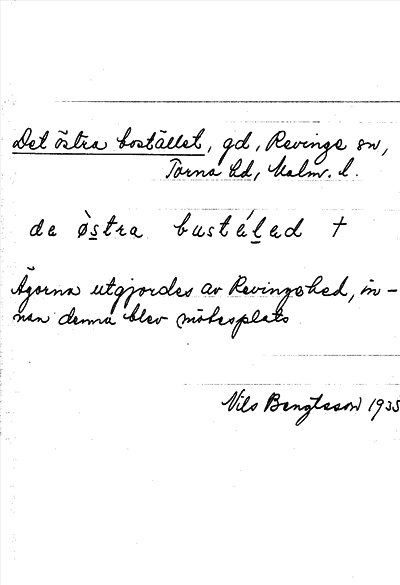 Det östra bostället, gd, Revinge sn,
Torna hd, Malm. l.
de ö̀stra bustálad †
Ägorna utgjordes av Revingehed, in-
nan denna blev mötesplats
Nils Bengtsson 1935